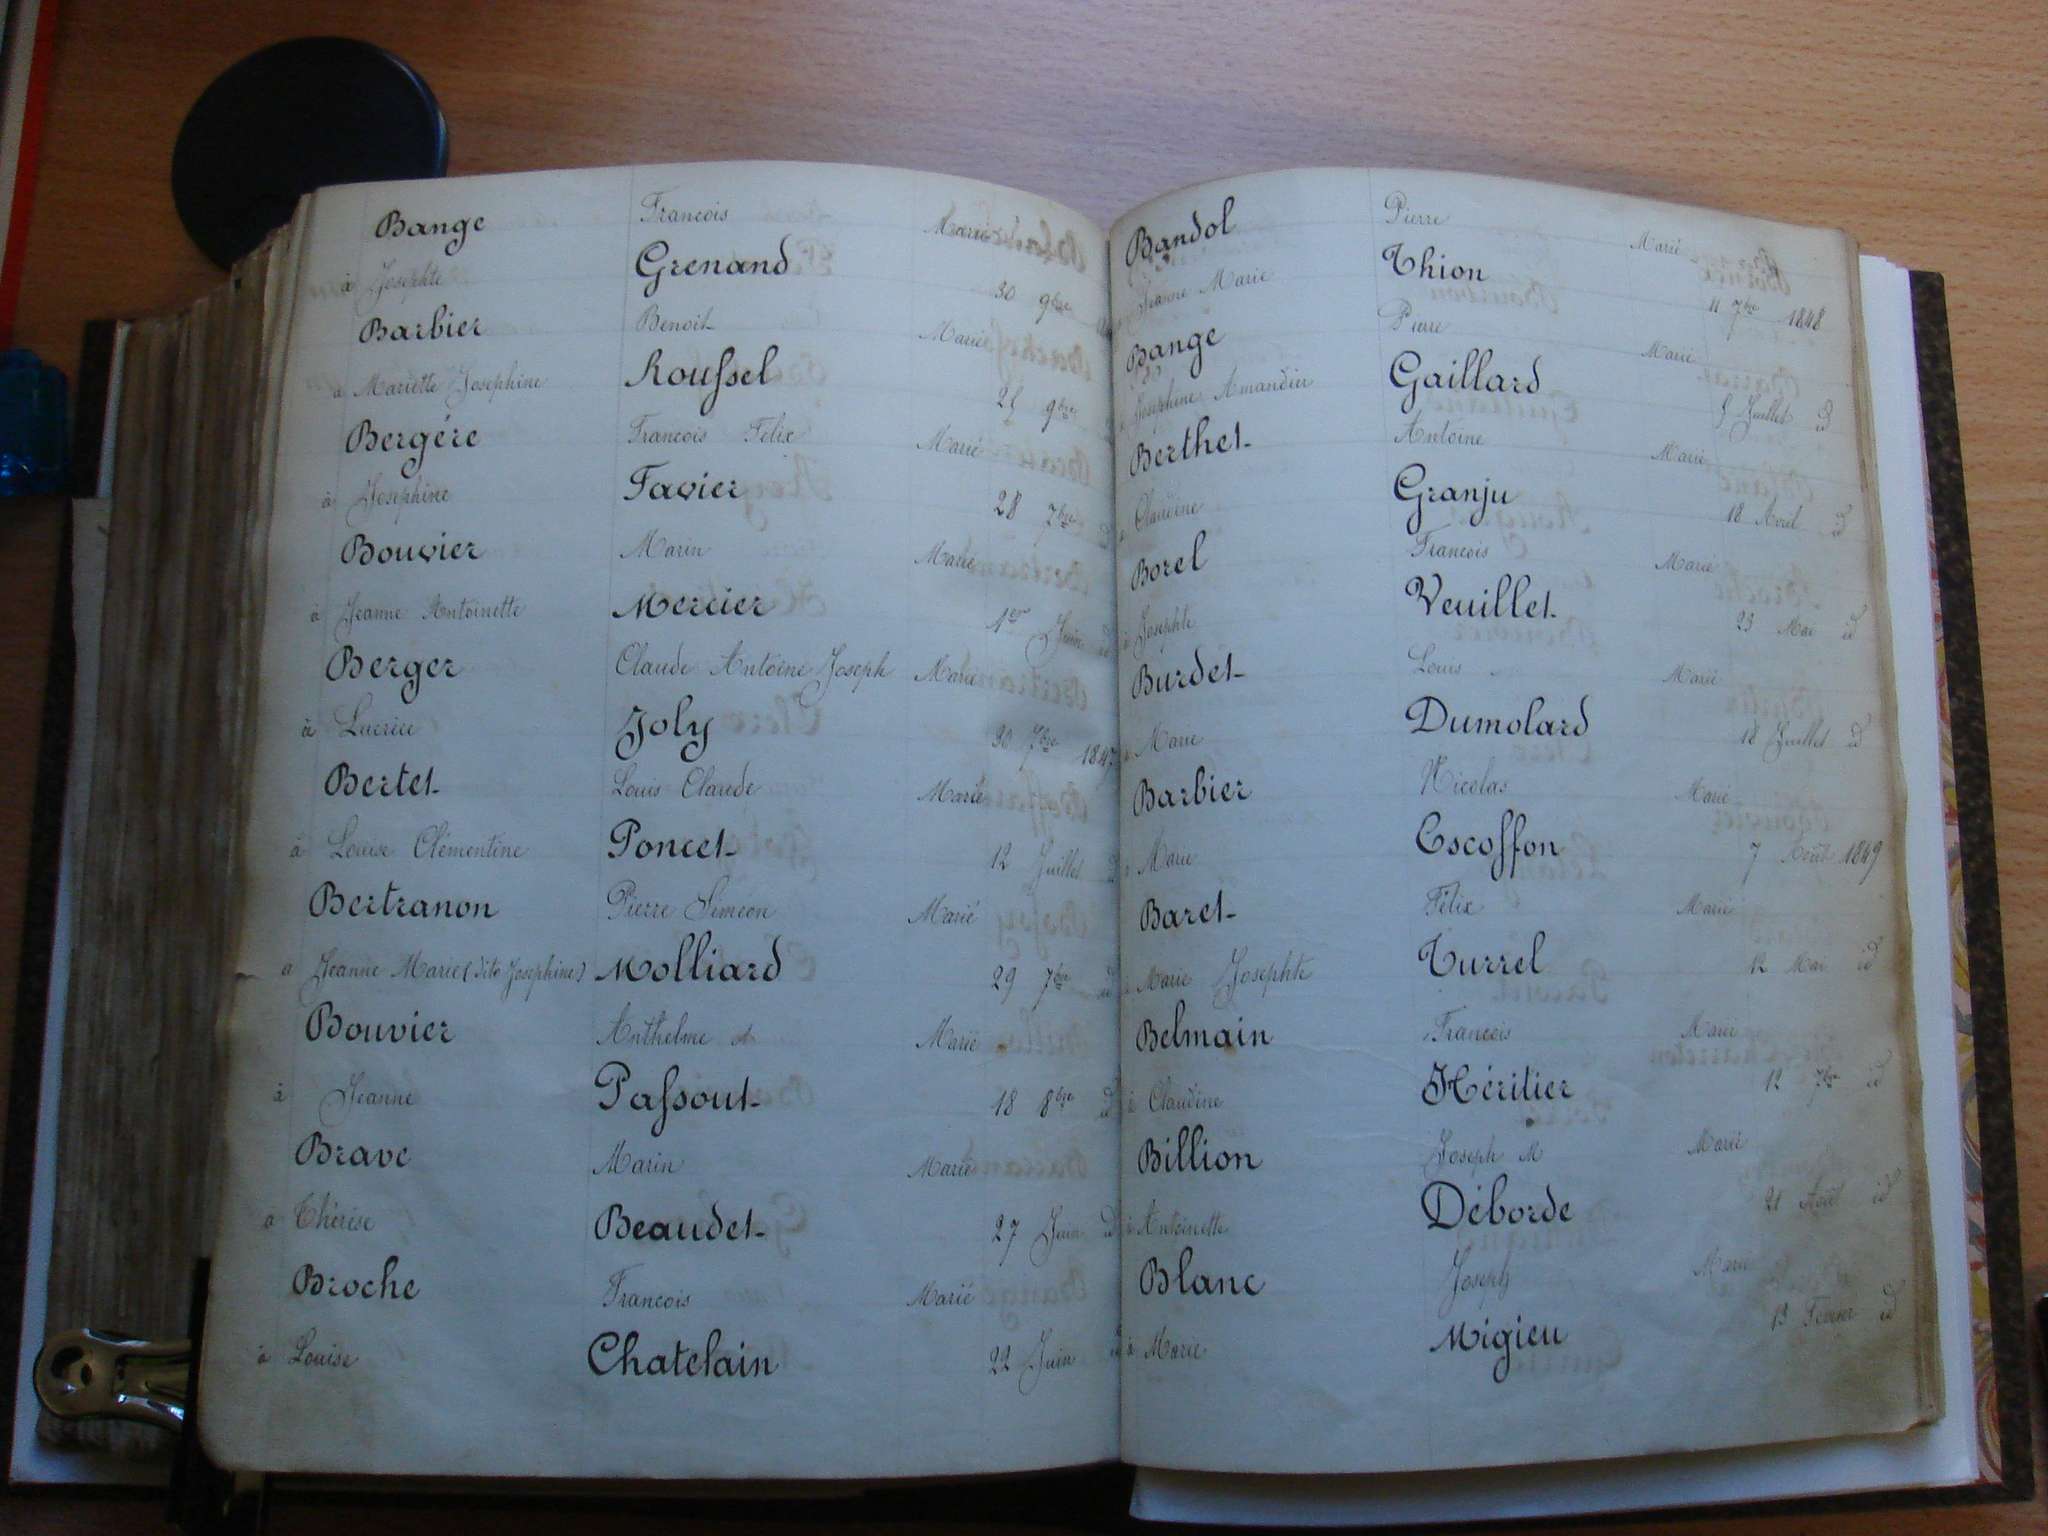 Bange François Marié
à Josephte Grenand 30 9bre
Barbier Benoit Marié
à Mariette Josephine Roussel 25 9bre
Bergére François Félix Marié
à Josephine Favier 28 7bre id
Bouvier Marin Marié
à Jeanne Antoinette Mercier 1er Juin id
Berger Claude Antoine Joseph Marié
à Lucrèce Joly 30 7bre 1847
Bertet Louis Claude Marié
à Louise Clémentine Poncet 12 Juillet id
Bertranon Pierre Siméon Marié
à Jeanne Marie (dite Josephine) Molliard 29 7bre id
Bouvier Anthelme Marié
à Jeanne Passout 18 8bre id
Brave Marin Marié
à Thérèse Beaudet 27 Juin id
Broche François Marié
à Louise Chatelain 22 Juin id
Bandol Pierre Marié
Jeanne Marie Thion 11 7bre 1848
Bange Pierre Marié
Josephine Amandier Gaillard 5 Juillet id
Berthet Antoine Marié
à Claudine Granju 18 Avril id
Borel François Marié
à Josephte Veuillet 23 Mai id
Burdet Louis Marié
à Marie Dumolard 18 Juillet id
Barbier Nicolas Marié
à Marie Escoffon 7 Août 1849
Baret Félix Marié
à Marie Josephte Turrel 12 Mai id
Belmain François Marié
à Claudine Héritier 12 7bre id
Billion Joseph M Marié
à Antoinette Déborde 21 Août id
Blanc Joseph Marié
à Marie Migieu 13 Février id